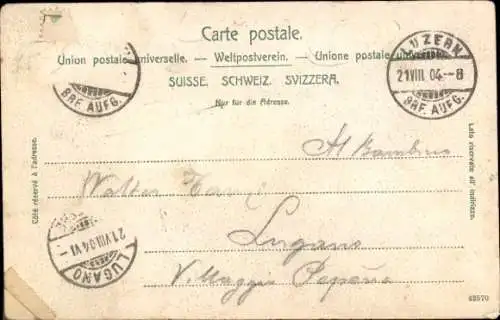 Carte postale.
Union postale universelle. — Weltpostverein. — Unione postale universale.
SUISSE. SCHWEIZ. SVIZZERA.
Nur für die Adresse.
BRF. AUFG.
LUZERN
21 VIII. 04. – 8
BRF. AUFG.
Côté réservé à l'adresse.
Lato riservato all' indirizzo.
Al Bambino
Walter
Lugano
Villaggio
LUGANO
21. VIII. 04. VI –
42570